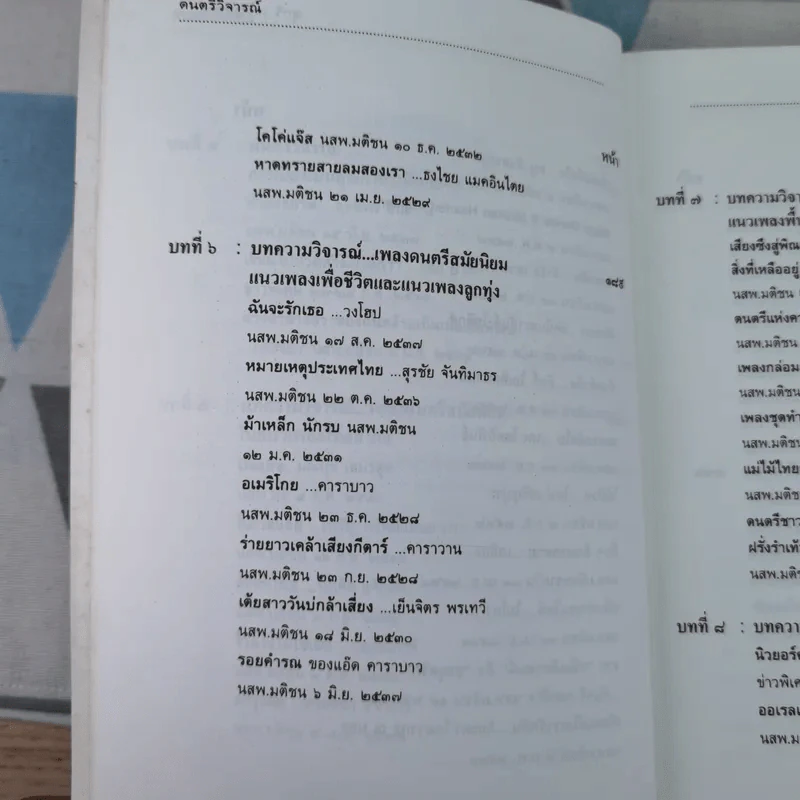 ดนตรีวิจารณ์
หน้า
โคโค่แจ๊ส นสพ.มติชน ๑๐ ธ.ค. ๒๕๓๒
หาดทรายสายลมสองเรา ...ธงไชย แมคอินไตย
นสพ.มติชน ๒๑ เม.ย. ๒๕๒๙
บทที่ ๖ : บทความวิจารณ์...เพลงดนตรีสมัยนิยม
แนวเพลงเพื่อชีวิตและแนวเพลงลูกทุ่ง
ฉันจะรักเธอ ...วงโฮป
นสพ.มติชน ๑๗ ส.ค. ๒๕๓๗
หมายเหตุประเทศไทย ...สุรชัย จันทิมาธร
นสพ.มติชน ๒๒ ต.ค. ๒๕๓๖
ม้าเหล็ก นักรบ นสพ.มติชน
๑๒ ม.ค. ๒๕๓๑
อเมริโกย ...คาราบาว
นสพ.มติชน ๒๓ ธ.ค. ๒๕๒๘
ร่ายยาวเคล้าเสียงกีตาร์ ...คาราวาน
นสพ.มติชน ๒๓ ก.ย. ๒๕๒๘
เต้ยสาววันบ่กล้าเสี่ยง ...เย็นจิตร พรเทวี
นสพ.มติชน ๑๘ มิ.ย. ๒๕๓๐
รอยคำรณ ของแอ๊ด คาราบาว
นสพ.มติชน ๖ มิ.ย. ๒๕๓๗
บทที่ ๗ : บทความวิจา
แนวเพลงพื้น
เสียงซึงสู่พิณ
สิ่งที่เหลืออยู่
นสพ.มติชน
ดนตรีแห่งคว
นสพ.มติชน
เพลงกล่อม
นสพ.มติชน
เพลงชุดทำ
นสพ.มติชน
แม่ไม้ไทย
นสพ.มติช
ดนตรีชาว
ฝรั่งรำเท้
นสพ.มติช
บทที่ ๘ : บทควา
นิวยอร์ค
ข่าวพิเศ
ออเรลเ
นสพ.ม